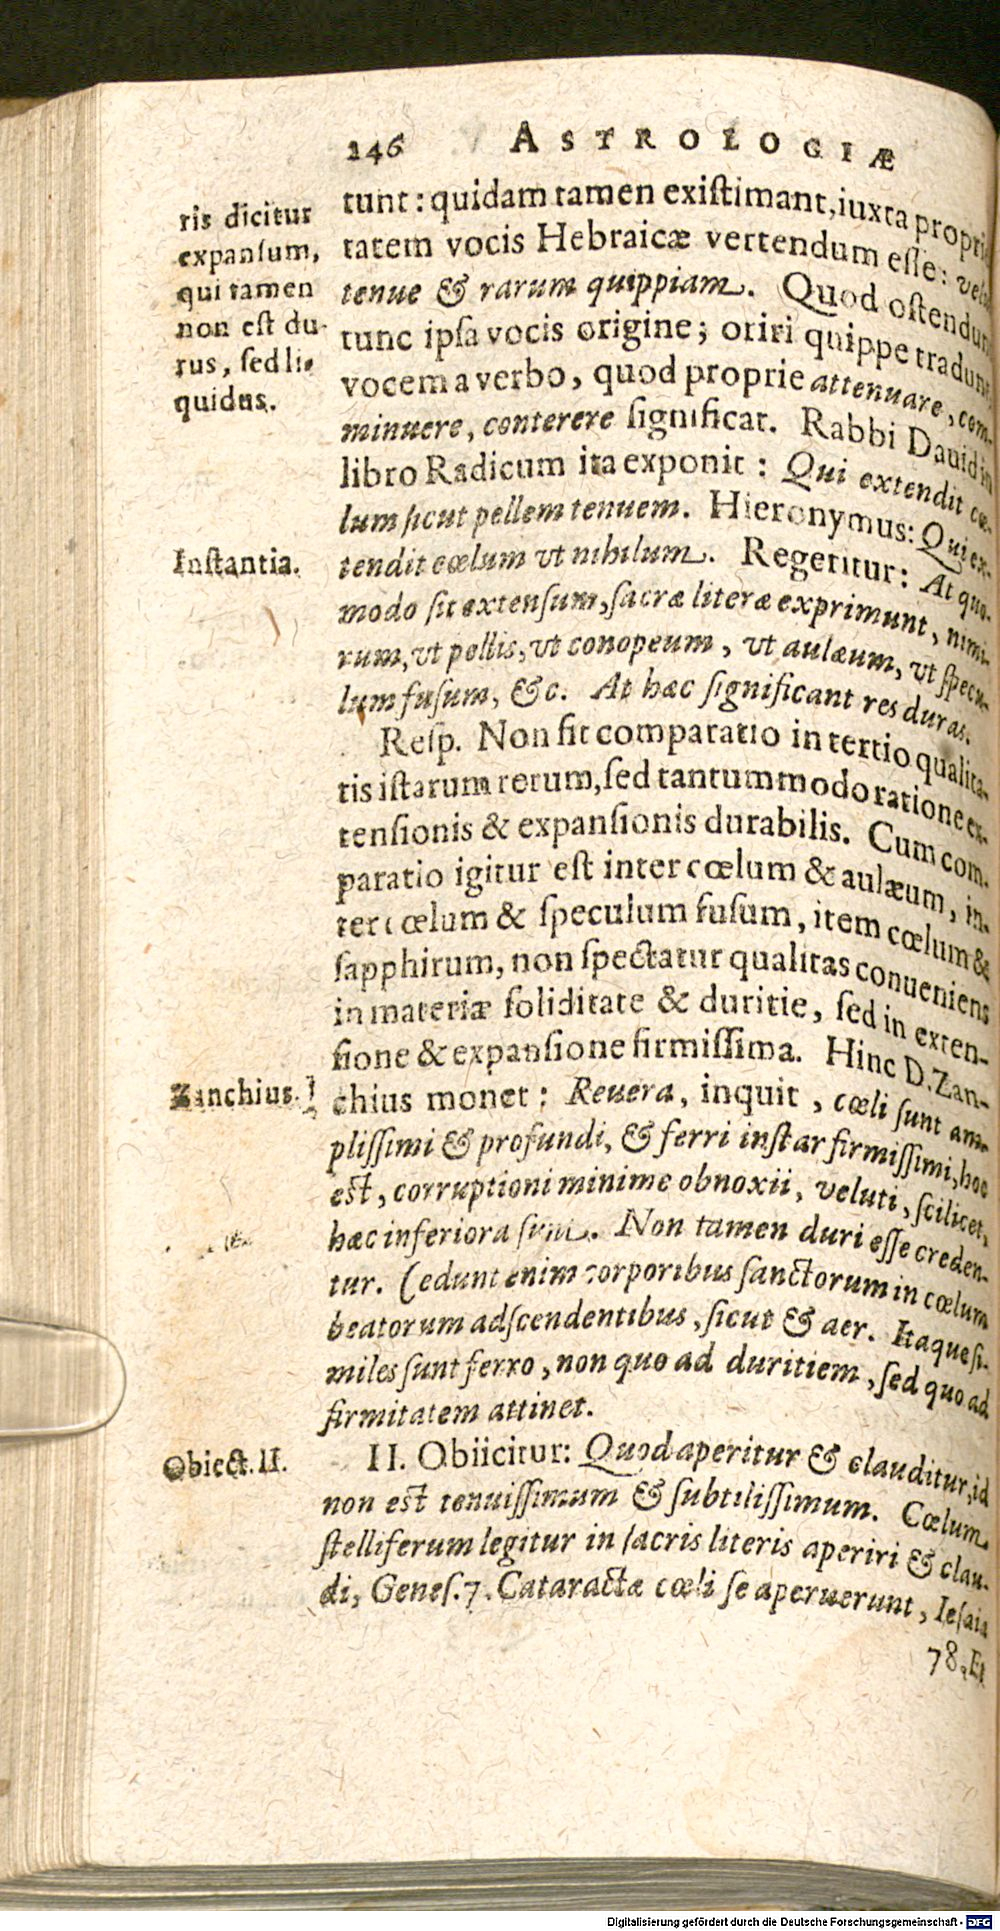 246 ASTROLOGIÆ
ris dicitur
expansum,
qui tamen
non est du-
rus, sed li-
quidus.
tunt: quidam tamen existimant, iuxta proprie
tatem vocis Hebraicæ vertendum esse: velut
tenue & rarum quippiam. Quod ostendunt
tunc ipsa vocis origine; oriri quippe tradunt
vocem a verbo, quod proprie attenuare, com-
minuere, conterere significat. Rabbi Dauid in
libro Radicum ita exponit: Qui extendit cœ-
lum sicut pellem tenuem. Hieronymus: Qui ex-
Instantia.
tendit cœlum vt nihilum. Regeritur: At quo-
modo sit extensum, sacræ literæ exprimunt, nimi-
rum, vt pellis, vt conopeum, vt aulæum, vt specu-
lum fusum, &c. At hæc significant res duras.
Resp. Non fit comparatio in tertio qualita-
tis istarum rerum, sed tantummodo ratione ex-
tensionis & expansionis durabilis. Cum com-
paratio igitur est inter cœlum & aulæum, in-
ter cœlum & speculum fusum, item cœlum &
sapphirum, non spectatur qualitas conueniens
in materiæ soliditate & duritie, sed in exten-
sione & expansione firmissima. Hinc D. Zan-
Zanchius.
chius monet: Reuera, inquit, cœli sunt am-
plissimi & profundi, & ferri instar firmissimi, hoc
est, corruptioni minime obnoxii, veluti, scilicet,
hæc inferiora sunt. Non tamen duri esse creden-
tur. Cedunt enim corporibus sanctorum in cœlum
beatorum adscendentibus, sicut & aer. Itaque si-
miles sunt ferro, non quo ad duritiem, sed quo ad
firmitatem attinet.
Obiect. II.
II. Obiicitur: Quod aperitur & clauditur, id
non est tenuissimum & subtilissimum. Cœlum
stelliferum legitur in sacris literis aperiri & clau-
di, Genes. 7. Cataractæ cœli se aperuerunt, Iesaia
78. Et
Digitalisierung gefördert durch die Deutsche Forschungsgemeinschaft - DFG